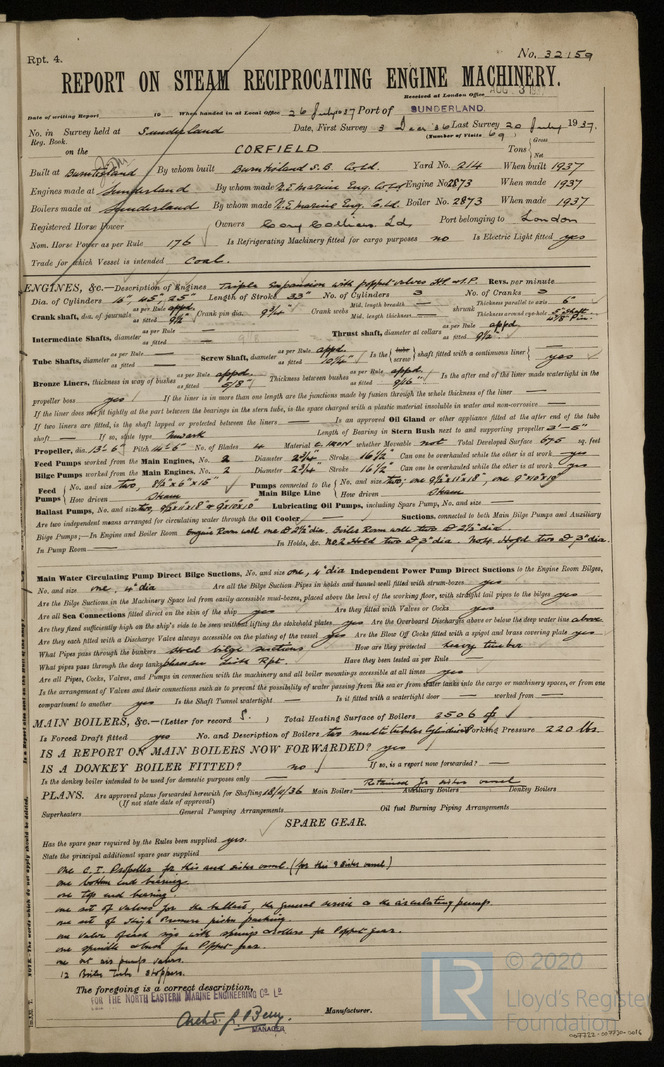 Rpt. 4.
No. 32159
REPORT ON STEAM RECIPROCATING ENGINE MACHINERY.
Received at London Office AUG 3 1937
Date of writing Report 19 When handed in at Local Office 26 July 1937 Port of SUNDERLAND
No. in Reg. Book. Survey held at Sunderland Date, First Survey 3 Dec '36 Last Survey 20 July 1937
(Number of Visits 69)
on the CORFIELD Tons Gross Net
Built at Burntisland By whom built Burntisland S.B. Co Ld Yard No. 214 When built 1937
Engines made at Sunderland By whom made N.E. Marine Eng. Co Ld Engine No. 2873 When made 1937
Boilers made at Sunderland By whom made N.E. Marine Eng. C. Ld. Boiler No. 2873 When made 1937
Registered Horse Power Owners Cory Colliers Ld. Port belonging to London
Nom. Horse Power as per Rule 176 Is Refrigerating Machinery fitted for cargo purposes no Is Electric Light fitted yes
Trade for which Vessel is intended Coal.
ENGINES, &c.—Description of Engines Triple Expansion with poppet valves Revs. per minute
Dia. of Cylinders Length of Stroke 33" No. of Cylinders 3 No. of Cranks 3
Crank shaft, dia. of journals as per Rule appd. as fitted Crank pin dia. 9¾" Crank webs Mid. length breadth — Mid. length thickness — shrunk Thickness parallel to axis 6" Thickness around eye-hole
Intermediate Shafts, diameter as per Rule — as fitted Thrust shaft, diameter at collars as per Rule appd. as fitted 9½"
Tube Shafts, diameter as per Rule — as fitted — Screw Shaft, diameter as per Rule appd. as fitted 10¼" Is the tube screw shaft fitted with a continuous liner yes
Bronze Liners, thickness in way of bushes as per Rule appd. as fitted 5/8" Thickness between bushes as per Rule appd. as fitted 9/16" Is the after end of the liner made watertight in the
propeller boss yes If the liner is in more than one length are the junctions made by fusion through the whole thickness of the liner —
If the liner does not fit tightly at the part between the bearings in the stern tube, is the space charged with a plastic material insoluble in water and non-corrosive —
If two liners are fitted, is the shaft lapped or protected between the liners — Is an approved Oil Gland or other appliance fitted at the after end of the tube
shaft — If so, state type Newark Length of Bearing in Stern Bush next to and supporting propeller 3'-5"
Propeller, dia. 13'-6" Pitch 14'-6" No. of Blades 4 Material C. IRON whether Moveable not Total Developed Surface 675 sq. feet
Feed Pumps worked from the Main Engines, No. 2 Diameter 2¾" Stroke 16½" Can one be overhauled while the other is at work yes
Bilge Pumps worked from the Main Engines, No. 2 Diameter 2¾" Stroke 16½" Can one be overhauled while the other is at work yes
Feed Pumps No. and size two, 8½"x6"x15" How driven Steam Pumps connected to the Main Bilge Line No. and size How driven Steam
Ballast Pumps, No. and size Lubricating Oil Pumps, including Spare Pump, No. and size —
Are two independent means arranged for circulating water through the Oil Cooler — Suctions, connected to both Main Bilge Pumps and Auxiliary
Bilge Pumps;—In Engine and Boiler Room Engine Room well one @ 2½" dia, Boiler Room well two @ 2½" dia.
In Pump Room — In Holds, &c. No. 2 Hold two @ 3" dia. No. 4 Hold two @ 3" dia.
Main Water Circulating Pump Direct Bilge Suctions, No. and size one, 4" dia Independent Power Pump Direct Suctions to the Engine Room Bilges,
No. and size one, 4" dia Are all the Bilge Suction Pipes in holds and tunnel well fitted with strum-boxes yes
Are the Bilge Suctions in the Machinery Space led from easily accessible mud-boxes, placed above the level of the working floor, with straight tail pipes to the bilges yes
Are all Sea Connections fitted direct on the skin of the ship yes Are they fitted with Valves or Cocks yes
Are they fixed sufficiently high on the ship's side to be seen without lifting the stokehold plates yes Are the Overboard Discharges above or below the deep water line above
Are they each fitted with a Discharge Valve always accessible on the plating of the vessel yes Are the Blow Off Cocks fitted with a spigot and brass covering plate yes
What Pipes pass through the bunkers Hold bilge suctions How are they protected heavy timber
What pipes pass through the deep tanks please see Lith Rpt. Have they been tested as per Rule
Are all Pipes, Cocks, Valves, and Pumps in connection with the machinery and all boiler mountings accessible at all times yes
Is the arrangement of Valves and their connections such as to prevent the possibility of water passing from the sea or from water tanks into the cargo or machinery spaces, or from one
compartment to another yes Is the Shaft Tunnel watertight — Is it fitted with a watertight door — worked from —
MAIN BOILERS, &c.—(Letter for record S.) Total Heating Surface of Boilers 2506
Is Forced Draft fitted yes No. and Description of Boilers two multitubular cylindrical Working Pressure 220 lbs.
IS A REPORT ON MAIN BOILERS NOW FORWARDED? yes
IS A DONKEY BOILER FITTED? no If so, is a report now forwarded? —
Is the donkey boiler intended to be used for domestic purposes only —
PLANS. Are approved plans forwarded herewith for Shafting 18/11/36 Main Boilers Retained for sister vessel Auxiliary Boilers Donkey Boilers
(If not state date of approval)
Superheaters General Pumping Arrangements Oil fuel Burning Piping Arrangements
SPARE GEAR.
Has the spare gear required by the Rules been supplied yes.
State the principal additional spare gear supplied
One C.I. Propeller for this and sister vessel (for this & sister vessel)
one bottom end bearing
one top end bearing.
one set of valves for the ballast, the general service & the circulating pumps.
one set of High Pressure piston packing.
one valve with springs & rollers for Poppet gear.
one spindle & bush for Poppet gear.
one set air pump valves.
12 Boiler Tube Stoppers.
The foregoing is a correct description,
FOR THE NORTH EASTERN MARINE ENGINEERING CO. LD.
Manufacturer.
MANAGER
LR
© 2020
Lloyd's Register
Foundation
007722-007730-0016